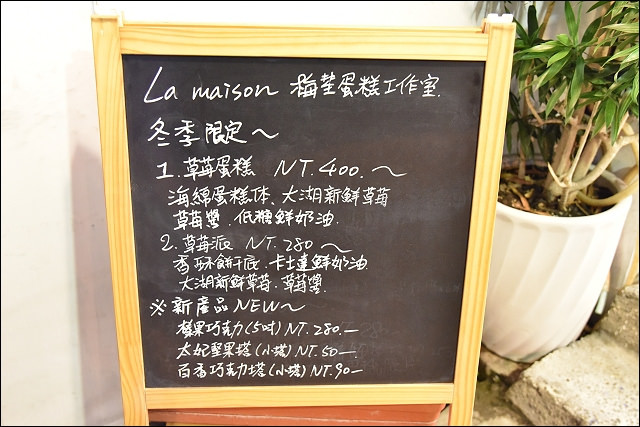 La maison 梅茎蛋糕工作室.
冬季限定~
1.草莓蛋糕 NT.400.~
海綿蛋糕体、大湖新鮮草莓
草莓醬.低糖鮮奶油.
2.草莓派 NT.280~
香酥餅干底.卡士達鮮奶油
大湖新鮮草莓.草莓醬.
※新產品NEW~
榛果巧克力(5吋)NT.280.—
太妃堅果塔(小塔)NT.50—
百香巧克力塔(小塔)NT.90—